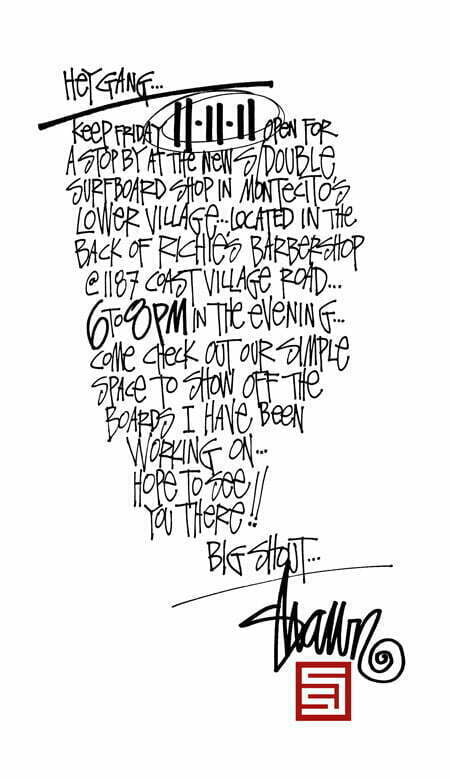 HEY GANG...
KEEP FRIDAY 11-11-11 OPEN FOR
A STOP BY AT THE NEW S/DOUBLE
SURFBOARD SHOP IN MONTECITO'S
LOWER VILLAGE...LOCATED IN THE
BACK OF RICHIE'S BARBERSHOP
@ 1187 COAST VILLAGE ROAD...
6 TO 8PM IN THE EVENING...
COME CHECK OUT OUR SIMPLE
SPACE TO SHOW OFF THE
BOARDS I HAVE BEEN
WORKING ON...
HOPE TO SEE
YOU THERE!!
BIG SHOUT...
Shawn